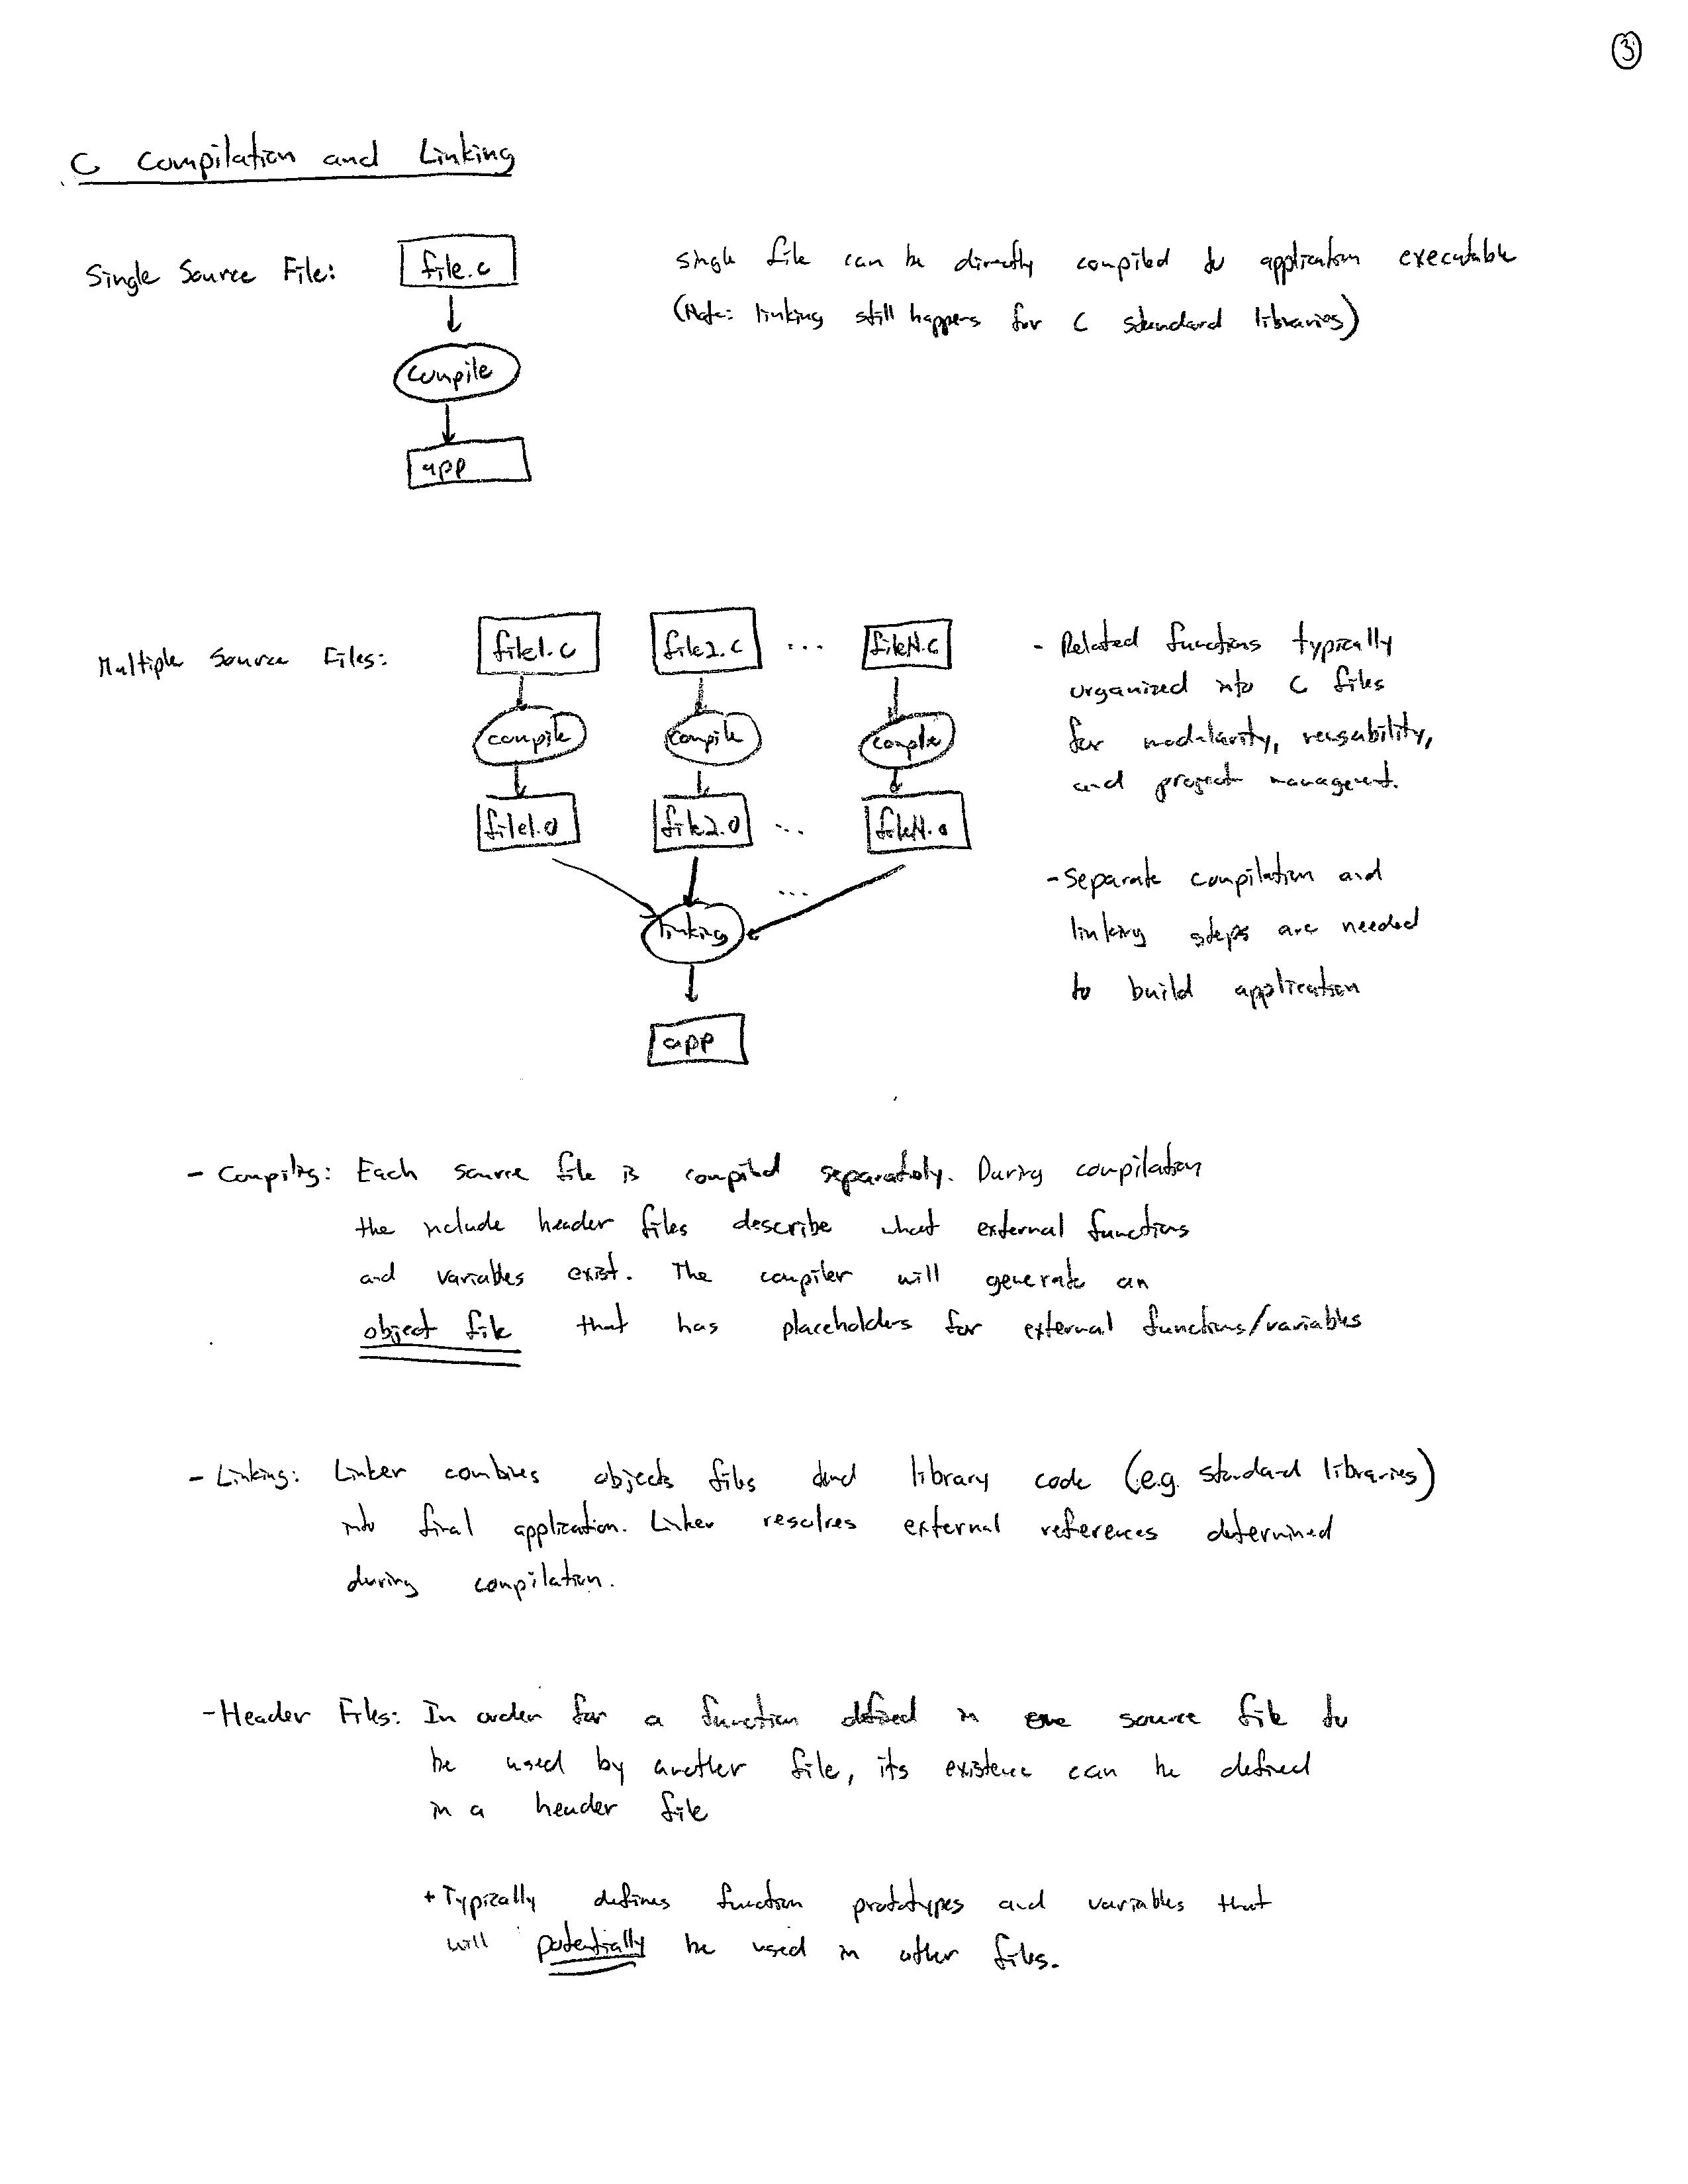 3
C Compilation and Linking
Single Source File:
file.c
compile
app
single file can be directly compiled to application executable
(Note: linking still happens for C standard libraries)
Multiple Source Files:
file1.c file2.c ... fileN.c
compile compile compile
file1.o file2.o ... fileN.o
...
linking
app
- Related functions typically
organized into C files
for modularity, reusability,
and project management.
- Separate compilation and
linking steps are needed
to build application
- Compiling: Each source file is compiled separately. During compilation
the include header files describe what external functions
and variables exist. The compiler will generate an
object file that has placeholders for external functions/variables
- Linking: Linker combines objects files and library code (e.g. standard libraries)
into final application. Linker resolves external references determined
during compilation.
- Header Files: In order for a function defined in one source file to
be used by another file, its existence can be defined
in a header file
+ Typically defines function prototypes and variables that
will potentially be used in other files.